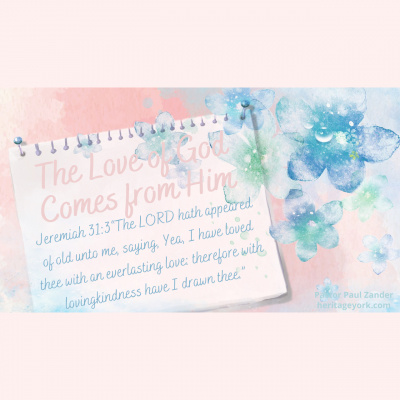 The Love of God
Comes from Him
Jeremiah 31:3"The LORD hath appeared
of old unto me, saying, Yea, I have loved
thee with an everlasting love: therefore with
lovingkindness have I drawn thee."
Paul Zander
heritageyork.com